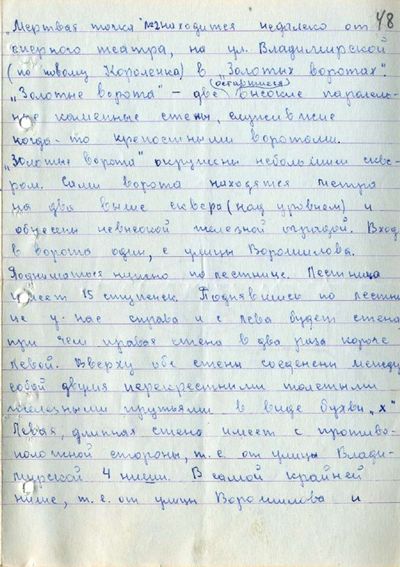 48
„Мертвая точка" №2 находится недалеко от
оперного театра, на ул. Владимирской
(по новому Короленка) в „Золотых воротах".
„Золотые ворота" – две (оставшиеся) высокие паралель-
ные каменные стены, служившие
когда-то крепостными воротами.
„Золотые ворота" окружены небольшим скве-
ром. Сами ворота находятся метра
на два выше сквера (над уровнем) и
обнесены невысокой железной оградой. Вход
в ворота один, с улицы Ворошилова.
Подниматься нужно по лестнице. Лестница
имеет 15 ступенек. Поднявшись по лестни-
це у нас справа и с лева будет стена
при чем правая стена в два раза короче
левой. Вверху обе стены соеденены между
собой двумя перекрестними толстыми
железными прутьями в виде буквы „х"
Левая, длинная стена имеет с противо-
положной стороны, т.е. от улицы Влади-
мирской 4 ниши. В самой крайней
нише, т.е. от улицы Ворошилова и